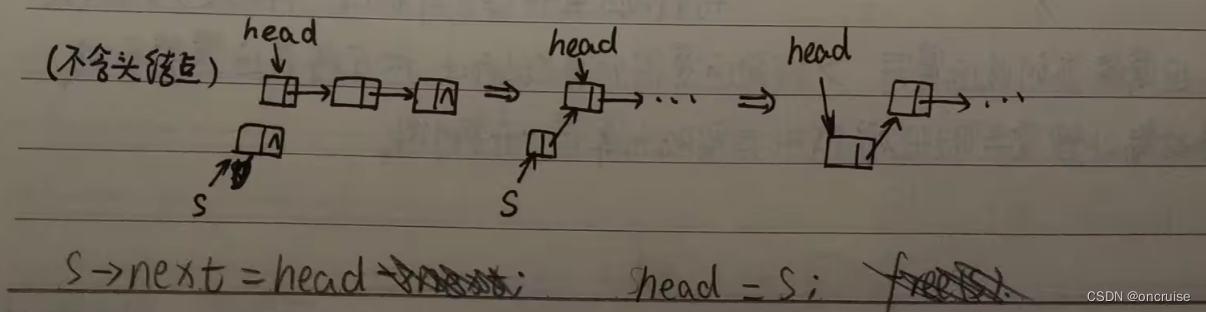 (不含头结点)
head
head
head
⇒
⇒
∧
∧
S
S
S→next = head ;
head = S;
CSDN @oncruise